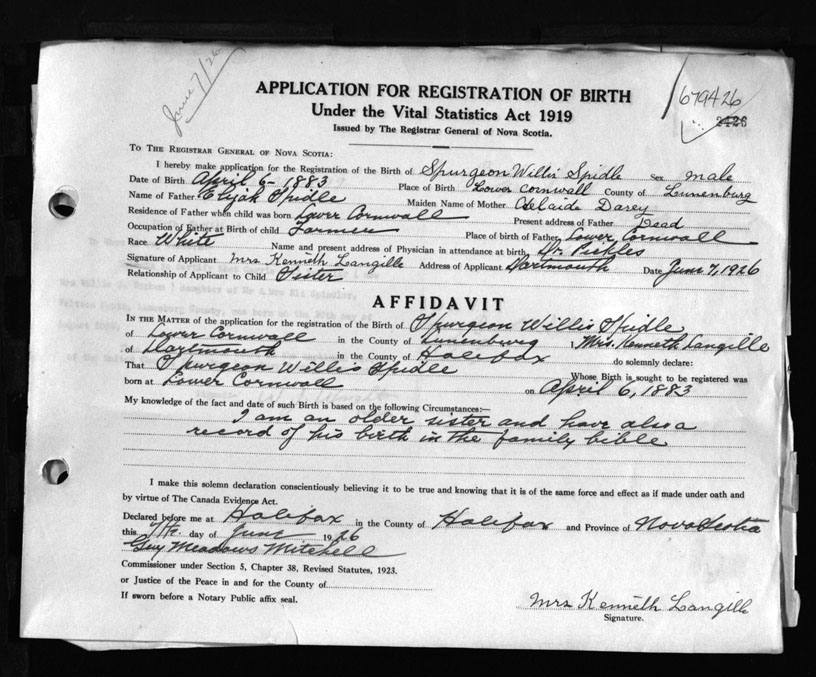 June 7/26
APPLICATION FOR REGISTRATION OF BIRTH
679426
Under the Vital Statistics Act 1919
2426
Issued by The Registrar General of Nova Scotia.
TO THE REGISTRAR GENERAL OF NOVA SCOTIA:
I hereby make application for the Registration of the Birth of Spurgeon Willis Spidle Sex male
Date of Birth April 6-1883 Place of Birth Lower Cornwall County of Lunenburg
Name of Father Elijah Spidle Maiden Name of Mother Adelaide Darey
Residence of Father when child was born Lower Cornwall Present address of Father Dead
Occupation of Father at Birth of child Farmer Place of birth of Father Lower Cornwall
Race White Name and present address of Physician in attendance at birth Dr. Pickles
Signature of Applicant Mrs. Kenneth Langille Address of Applicant Dartmouth Date June 7, 1926
Relationship of Applicant to Child Sister
AFFIDAVIT
IN THE MATTER of the application for the registration of the Birth of Spurgeon Willis Spidle
of Lower Cornwall in the County of Lunenburg I Mrs. Kenneth Langille
of Dartmouth in the County of Halifax do solemnly declare:
That Spurgeon Willis Spidle Whose Birth is sought to be registered was
born at Lower Cornwall on April 6, 1883
My knowledge of the fact and date of such Birth is based on the following Circumstances:—
I am an older sister and have also a
record of his birth in the family bible
I make this solemn declaration conscientiously believing it to be true and knowing that it is of the same force and effect as if made under oath and
by virtue of The Canada Evidence Act.
Declared before me at Halifax in the County of Halifax and Province of Nova Scotia
this 7th day of June 1926
Guy Meadows Mitchell
Commissioner under Section 5, Chapter 38, Revised Statutes, 1923.
or Justice of the Peace in and for the County of
If sworn before a Notary Public affix seal.
Mrs Kenneth Langille
Signature.